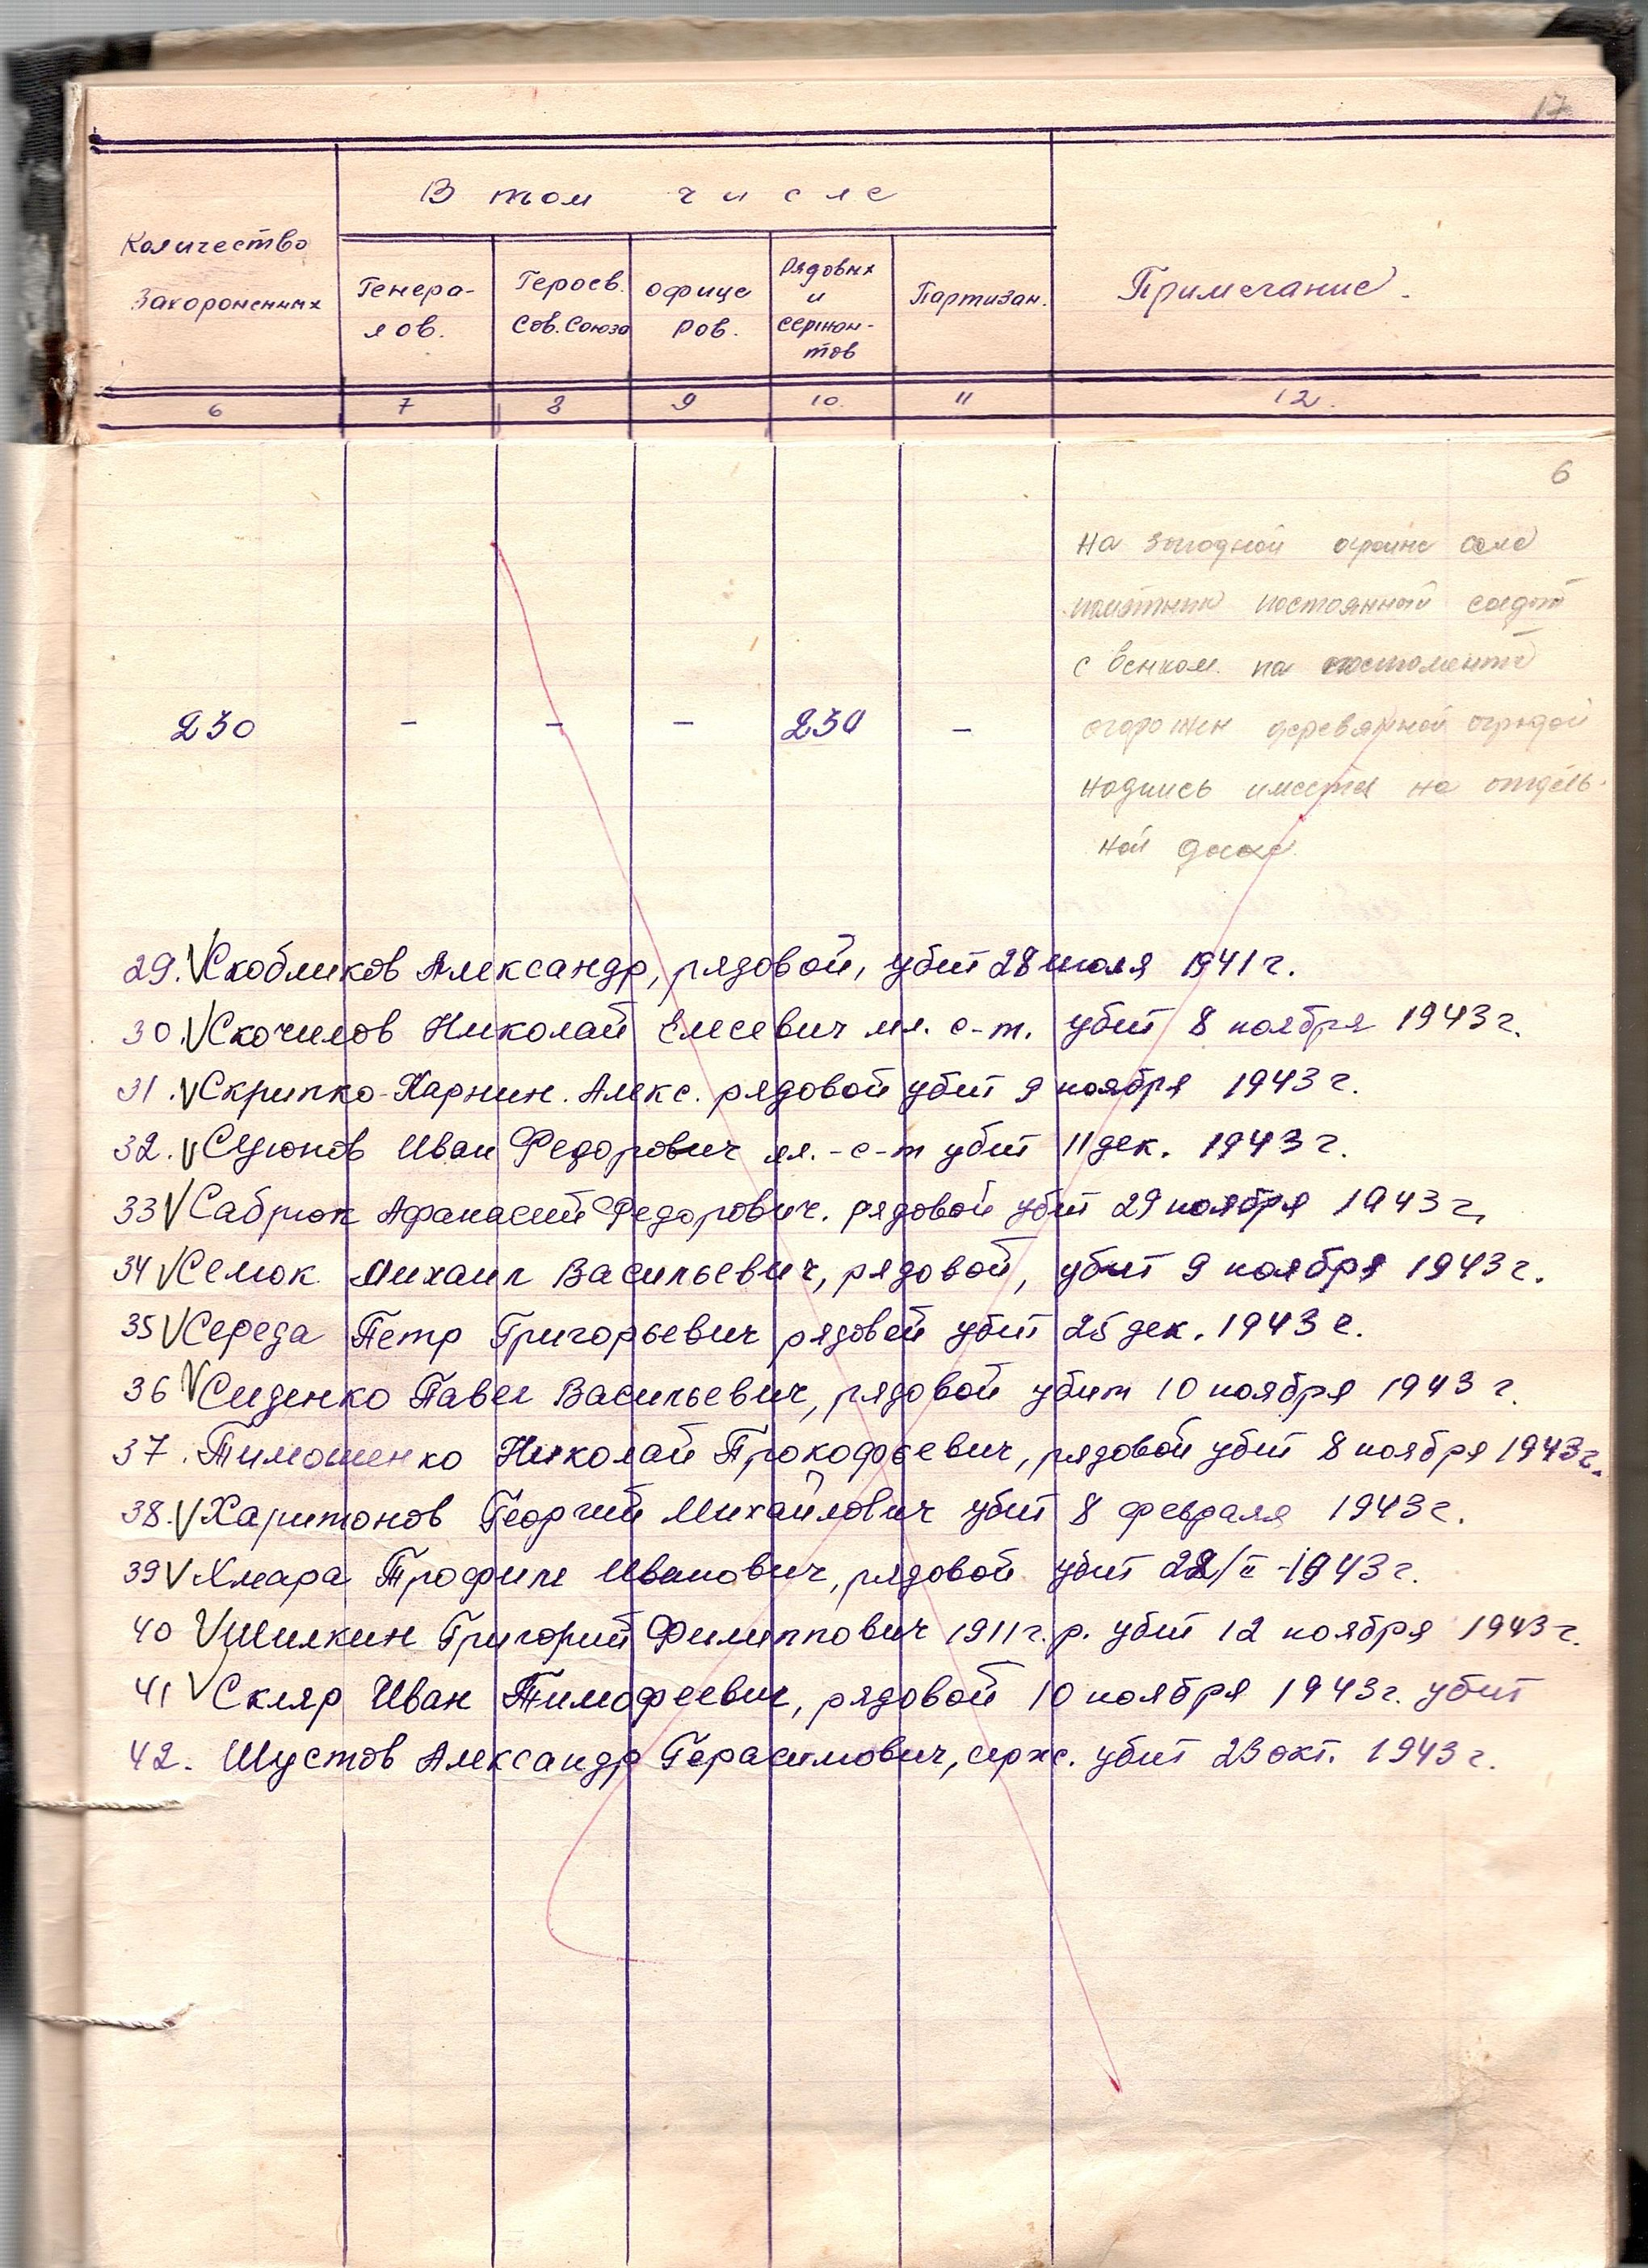 17
В том числе
Количество
Захороненных
Генера-
лов.
Героев.
Сов. Союза
офице
ров.
Рядовых
и
сержан-
тов
Партизан.
Примечание.
6 7 8 9 10. 11 12.
6
на западной окраине села
памятник постоянный солдат
с венком. на постаменте
огорожен деревянной оградой
надпись имеется на отдель-
ной доске.
230 - - - 230 -
29. V Скобликов Александр, рядовой, убит 28 июля 1941 г.
30. V Скочилов Николай Елисевич мл. с-т. убит 8 ноября 1943 г.
31. V Скрипко-Харнин. Алекс. рядовой убит 9 ноября 1943 г.
32. V Иван Федорович мл.-с-т убит 11 дек. 1943 г.
33 V Сабрюк Афанасий Федорович. рядовой убит 29 ноября 1943 г,
34 V Семок Михаил Васильевич, рядовой, убит 9 ноября 1943 г.
35 V Середа Петр Григорьевич рядовой убит 25 дек. 1943 г.
36 V Сиденко Павел Васильевич, рядовой убит 10 ноября 1943 г.
37. Тимошенко Николай Прокофьевич, рядовой убит 8 ноября 1943 г.
38. V Харитонов Георгий Михайлович убит 8 февраля 1943 г.
39 V Хмара Трофим Иванович, рядовой убит 28/II-1943 г.
40 V Шилкин Григорий Филиппович 1911 г.р. убит 12 ноября 1943 г.
41 V Скляр Иван Тимофеевич, рядовой 10 ноября 1943 г. убит
42. Шустов Александр Герасимович, серж. убит 23 окт. 1943 г.